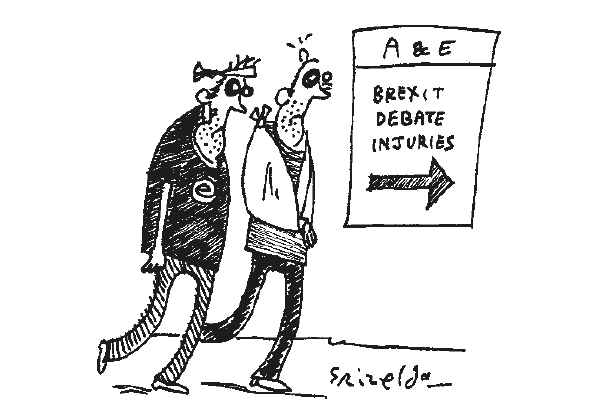 A & E
BREXIT
DEBATE
INJURIES
Grizelda